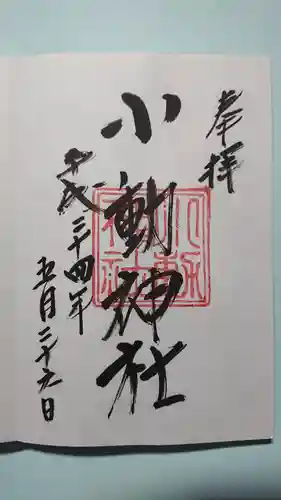 奉拝
小動神社
平成三十四年
五月二十六日
小動神社